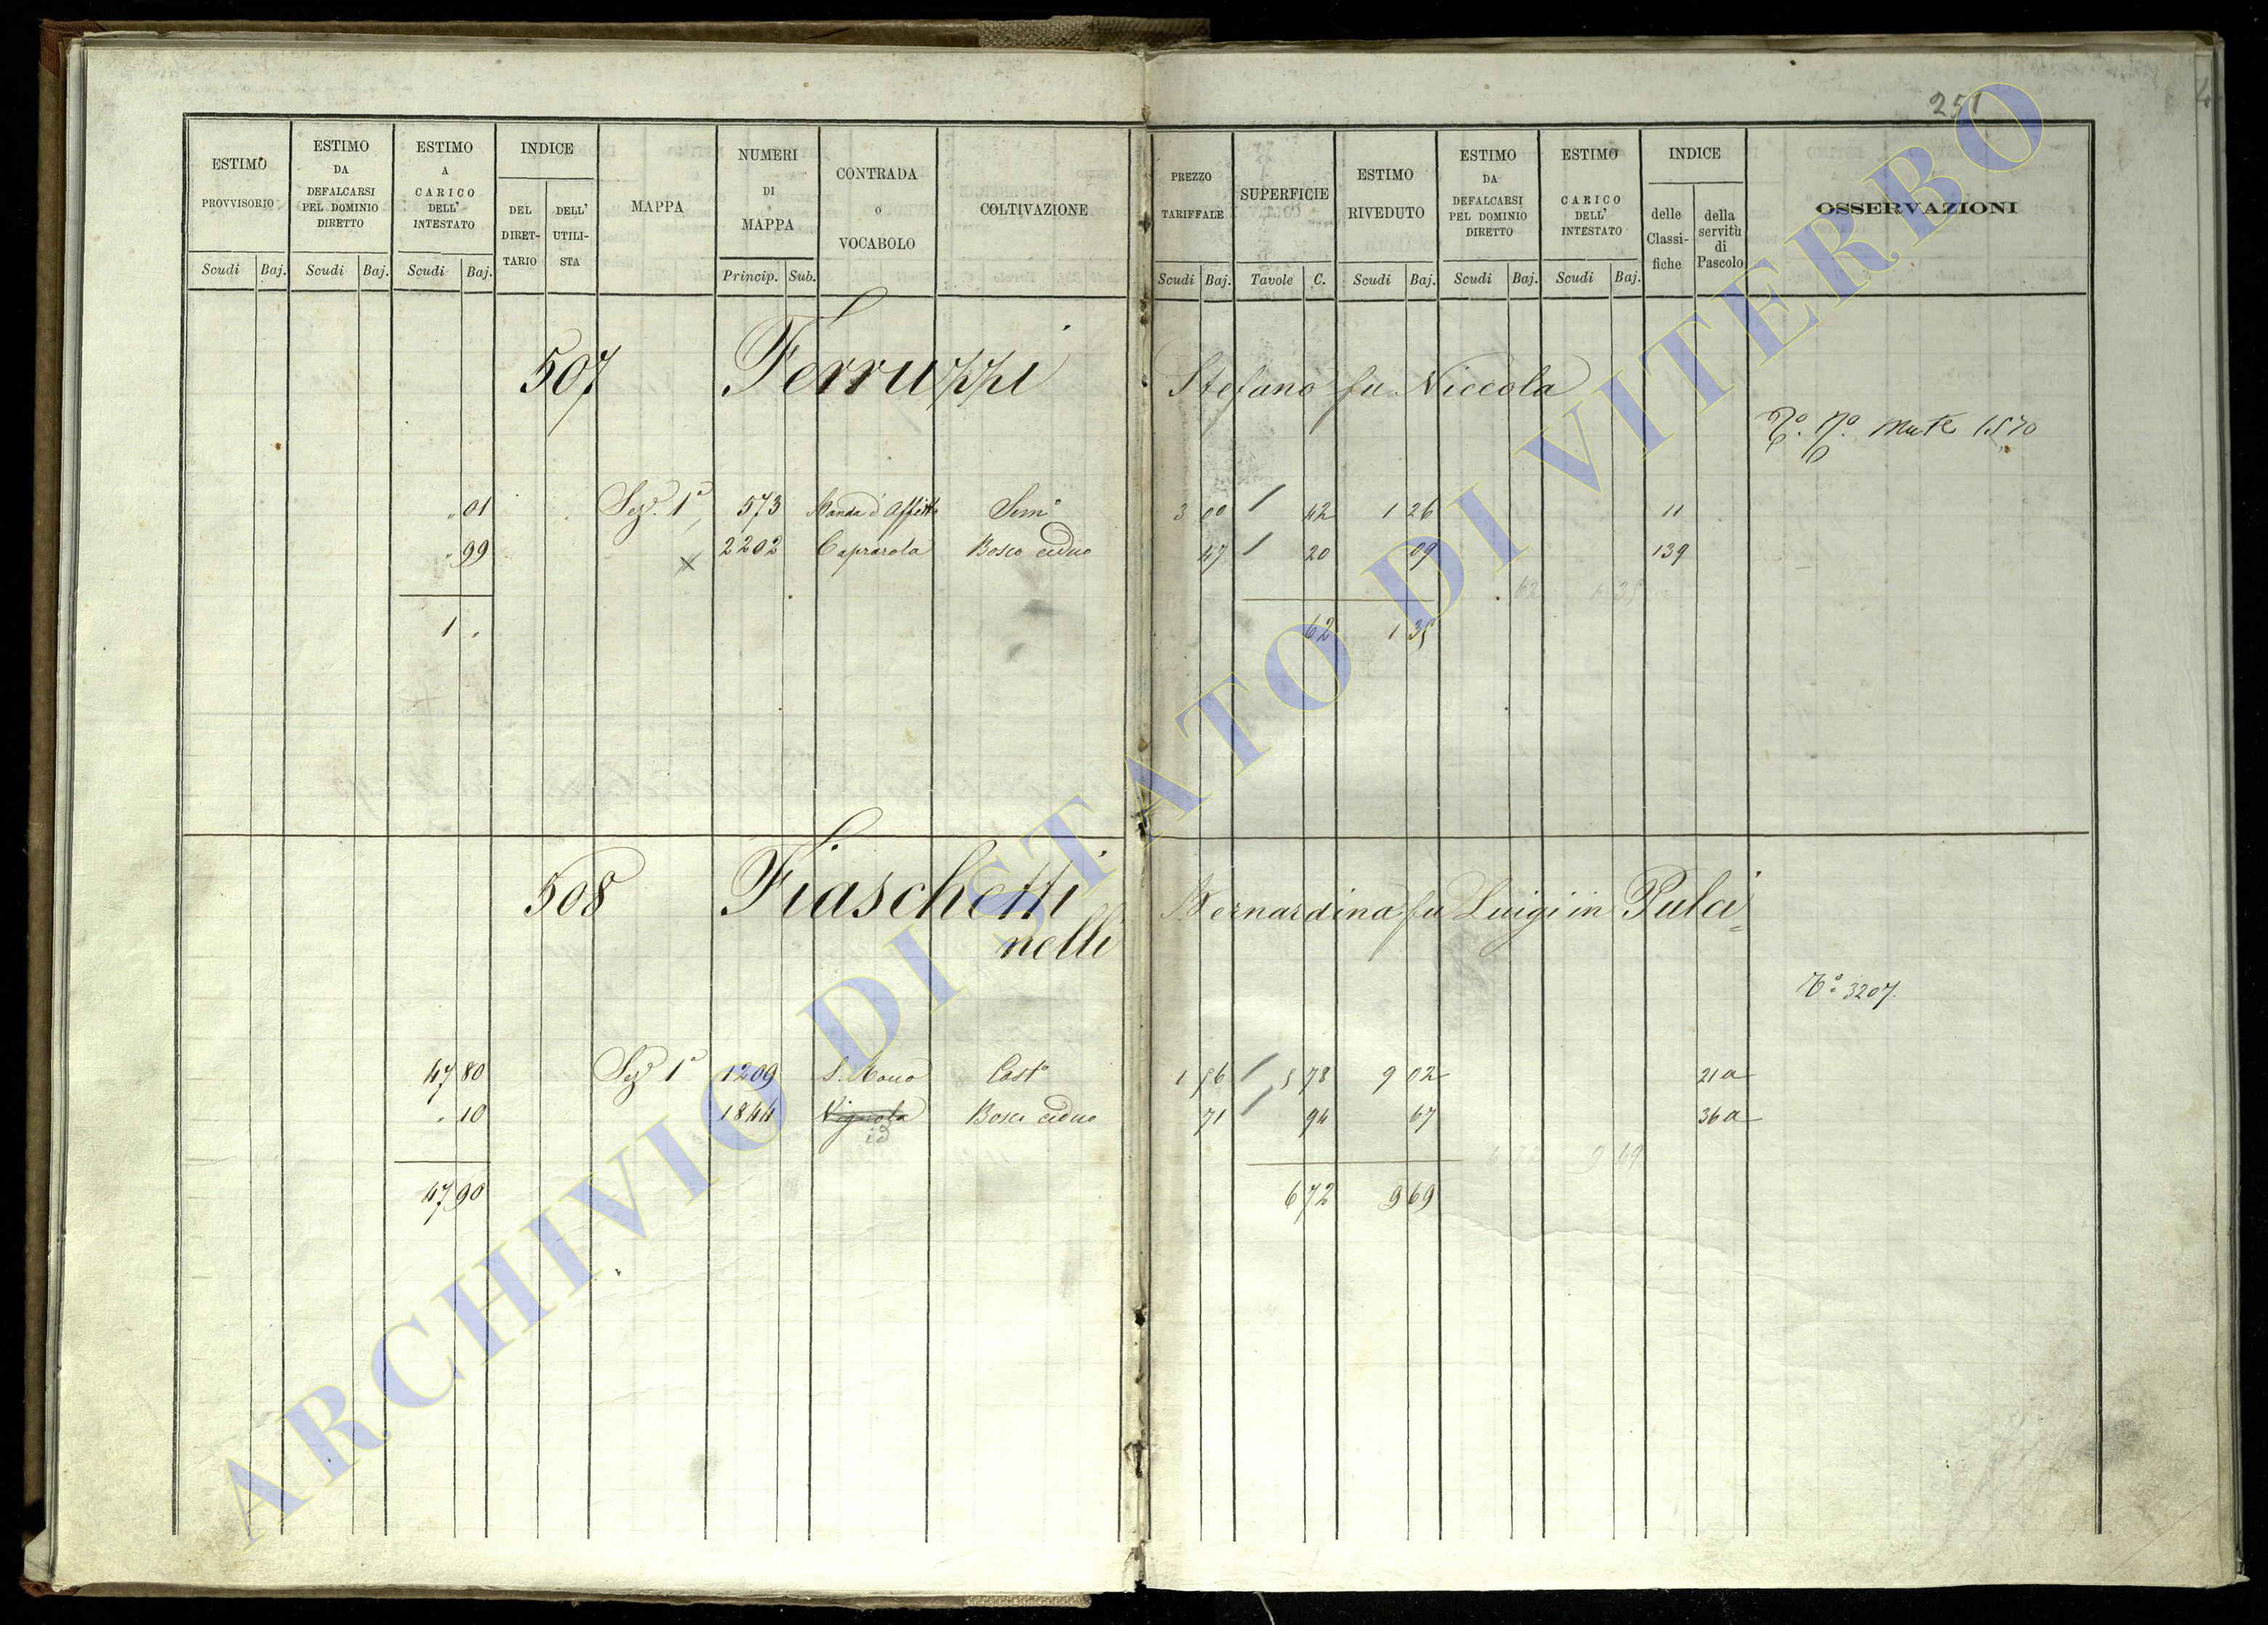 251
ESTIMO PROVVISORIO
ESTIMO DA DEFALCARSI PEL DOMINIO DIRETTO
ESTIMO A CARICO DELL' INTESTATO
INDICE
DEL DIRET-TARIO
DELL' UTILI-STA
MAPPA
NUMERI DI MAPPA
CONTRADA o VOCABOLO
COLTIVAZIONE
PREZZO TARIFFALE
SUPERFICIE
ESTIMO RIVEDUTO
ESTIMO DA DEFALCARSI PEL DOMINIO DIRETTO
ESTIMO CARICO DELL' INTESTATO
INDICE
delle Classi-fiche
della servitù di Pascolo
OSSERVAZIONI
Scudi Baj. Scudi Baj. Scudi Baj. Princip. Sub. Scudi Baj. Tavole C. Scudi Baj. Scudi Baj. Scudi Baj.
507 Ferruzzi Stefano fu Niccola
1570
" 01 Sez. 1ª 573 Semº 3 00 42 1 26 11
" 99 2202 Caprarola Bosco ceduo 47 20 09 139
62 1 35
1 " 62 1 35
508 Fiaschetti Bernardina fu Luigi in Pulci=
nelli
3207.
47 80 Sez 1ª 1209 S. Rocco Castº 1 56 5 78 9 02 21a
" 10 1844 Vignola Bosco ceduo 71 94 67 36a
id
6 72 9 69
47 90 6 72 9 69
ARCHIVIO DI STATO DI VITERBO